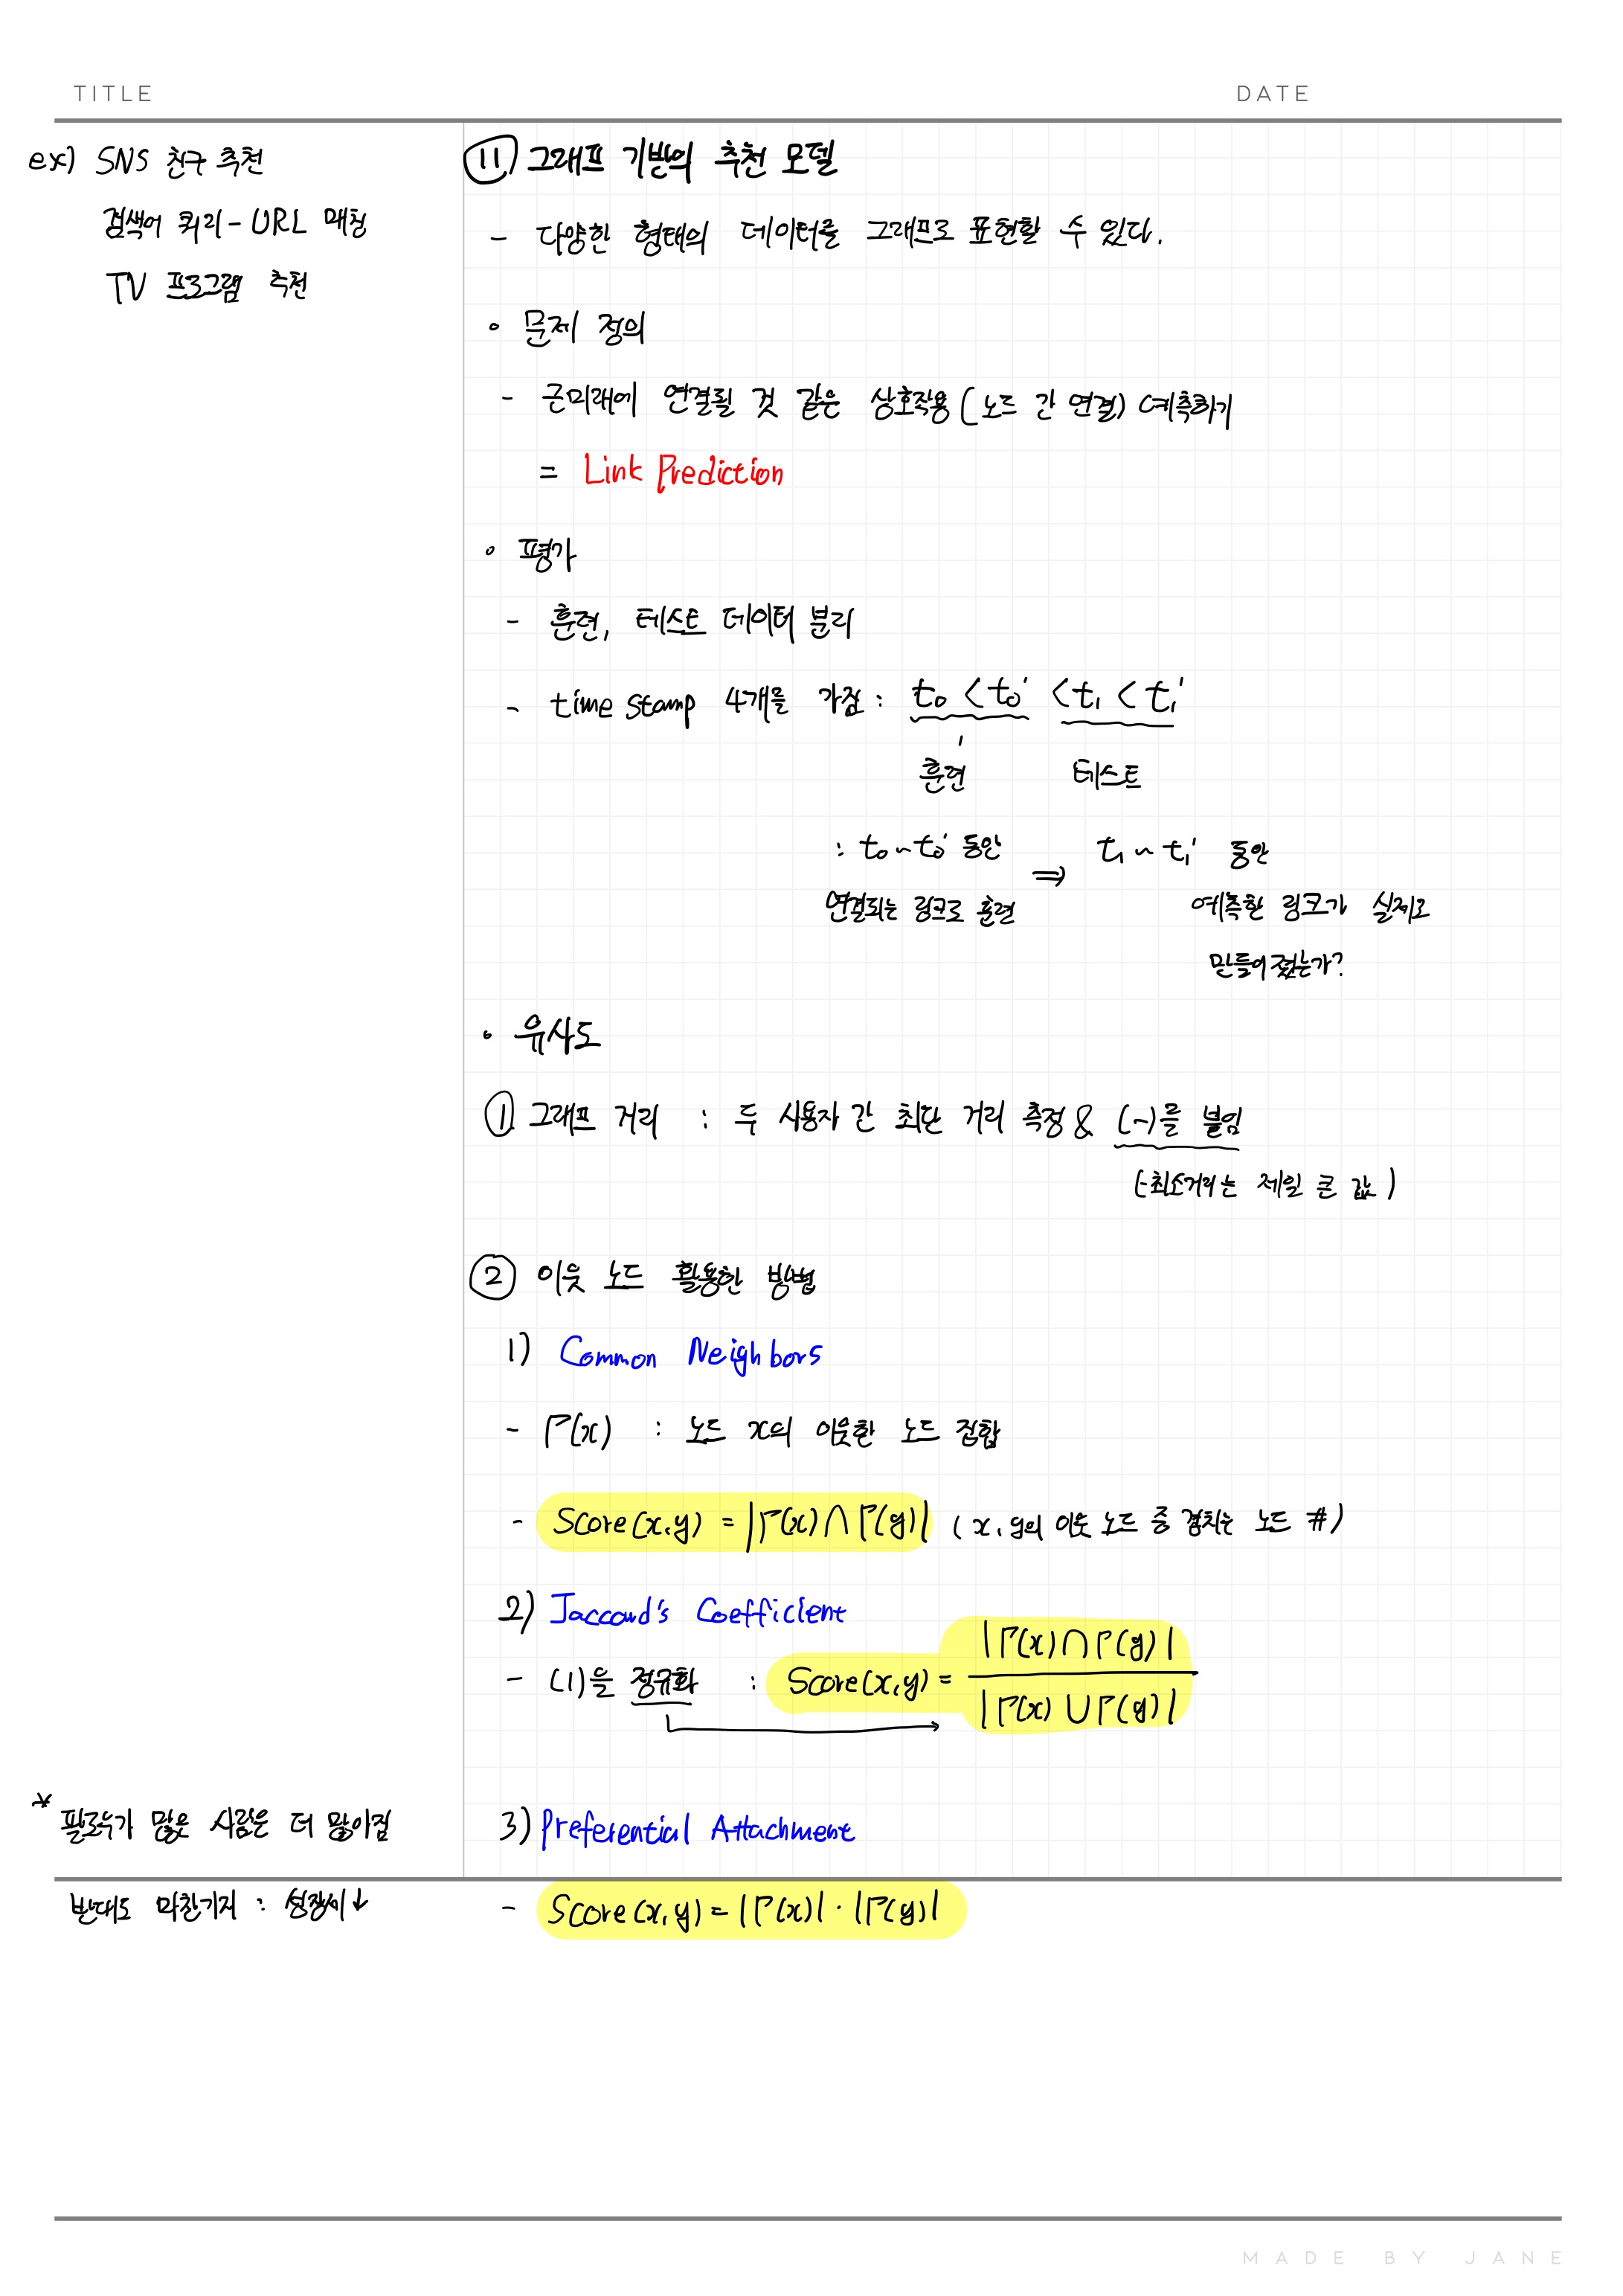 TITLE
DATE
ex) SNS 친구 추천
검색어 쿼리 - URL 매칭
TV 프로그램 추천
⑪ 그래프 기반의 추천 모델
- 다양한 형태의 데이터를 그래프로 표현할 수 있다.
• 문제 정의
- 근미래에 연결될 것 같은 상호작용 (노드 간 연결) 예측하기
= Link Prediction
• 평가
- 훈련, 테스트 데이터 분리
- time stamp 4개를 가짐 : t₀ < t₀' < t₁ < t₁'
훈련 테스트
: t₀ ~ t₀' 동안 ⇒ t₁ ~ t₁' 동안
연결되는 링크로 훈련 예측한 링크가 실제로
만들어졌는가?
• 유사도
① 그래프 거리 : 두 사용자 간 최단 거리 측정 & (-)를 붙임
(-최소거리는 제일 큰 값)
② 이웃 노드 활용한 방법
1) Common Neighbors
- Γ(x) : 노드 x의 이웃한 노드 집합
- Score(x,y) = |Γ(x) ∩ Γ(y)| (x, y의 이웃 노드 중 겹치는 노드 #)
2) Jaccard's Coefficient
- (1)을 정규화 : Score(x,y) = |Γ(x) ∩ Γ(y)| / |Γ(x) ∪ Γ(y)|
* 팔로워가 많은 사람은 더 많아짐
반대도 마찬가지 : 성장세 ↓
3) Preferential Attachment
- Score(x,y) = |Γ(x)| · |Γ(y)|
MADE BY JANE